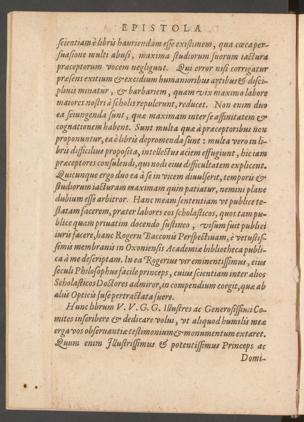 EPISTOLA
scientiam è libris hauriendam esse existiment, qua cæca per-
suasione multi abusi, maxima studiorum suorum iactura
præceptorum vicem negligunt. Qui error nisi corrigatur
præsens exitium & excidium humanioribus artibus & disci-
plinis minatur, & barbariem, quam vix maximo labore
maiores nostri à scholis repulerunt, reducet. Non enim duo
ea seiungenda sunt, quæ maximam inter se affinitatem &
cognationem habent. Sunt multa quæ à præceptoribus non
proponuntur, ea è libris depromenda sunt: multa vero in li-
bris difficilius proposita, intellectus aciem effugiunt, hic iam
præceptores consulendi, qui nodi eius difficultatem explicent.
Quicunque ergo duo ea à se in vicem diuulserit, temporis &
studiorum iacturam maximam quin patiatur, nemini plane
dubium esse arbitror. Hanc meam sententiam vt publice te-
statam facerem, præter labores eos scholasticos, quos tam pu-
blice quam priuatim docendo sustineo, visum fuit publici
iuris facere, hanc Rogerii Bacconis Perspectiuam, è vetustis-
simis membranis in Oxoniensis Academiæ bibliotheca publi-
ca à me descriptam. In ea Rogerius vir eminentissimus, eius
seculi Philosophus facile princeps, cuius scientiam inter alios
Scholasticos Doctores admiror, in compendium coegit, quæ ab
aliis Opticis fuse pertractata fuere.
Hunc librum V. V. G. G. Illustres ac Generosissimi Co-
mites inscribere & dedicare volui, vt aliquod humilis meæ
erga vos obseruantiæ testimonium & monumentum extaret.
Quum enim Illustrissimus & potentissimus Princeps ac
Domi-